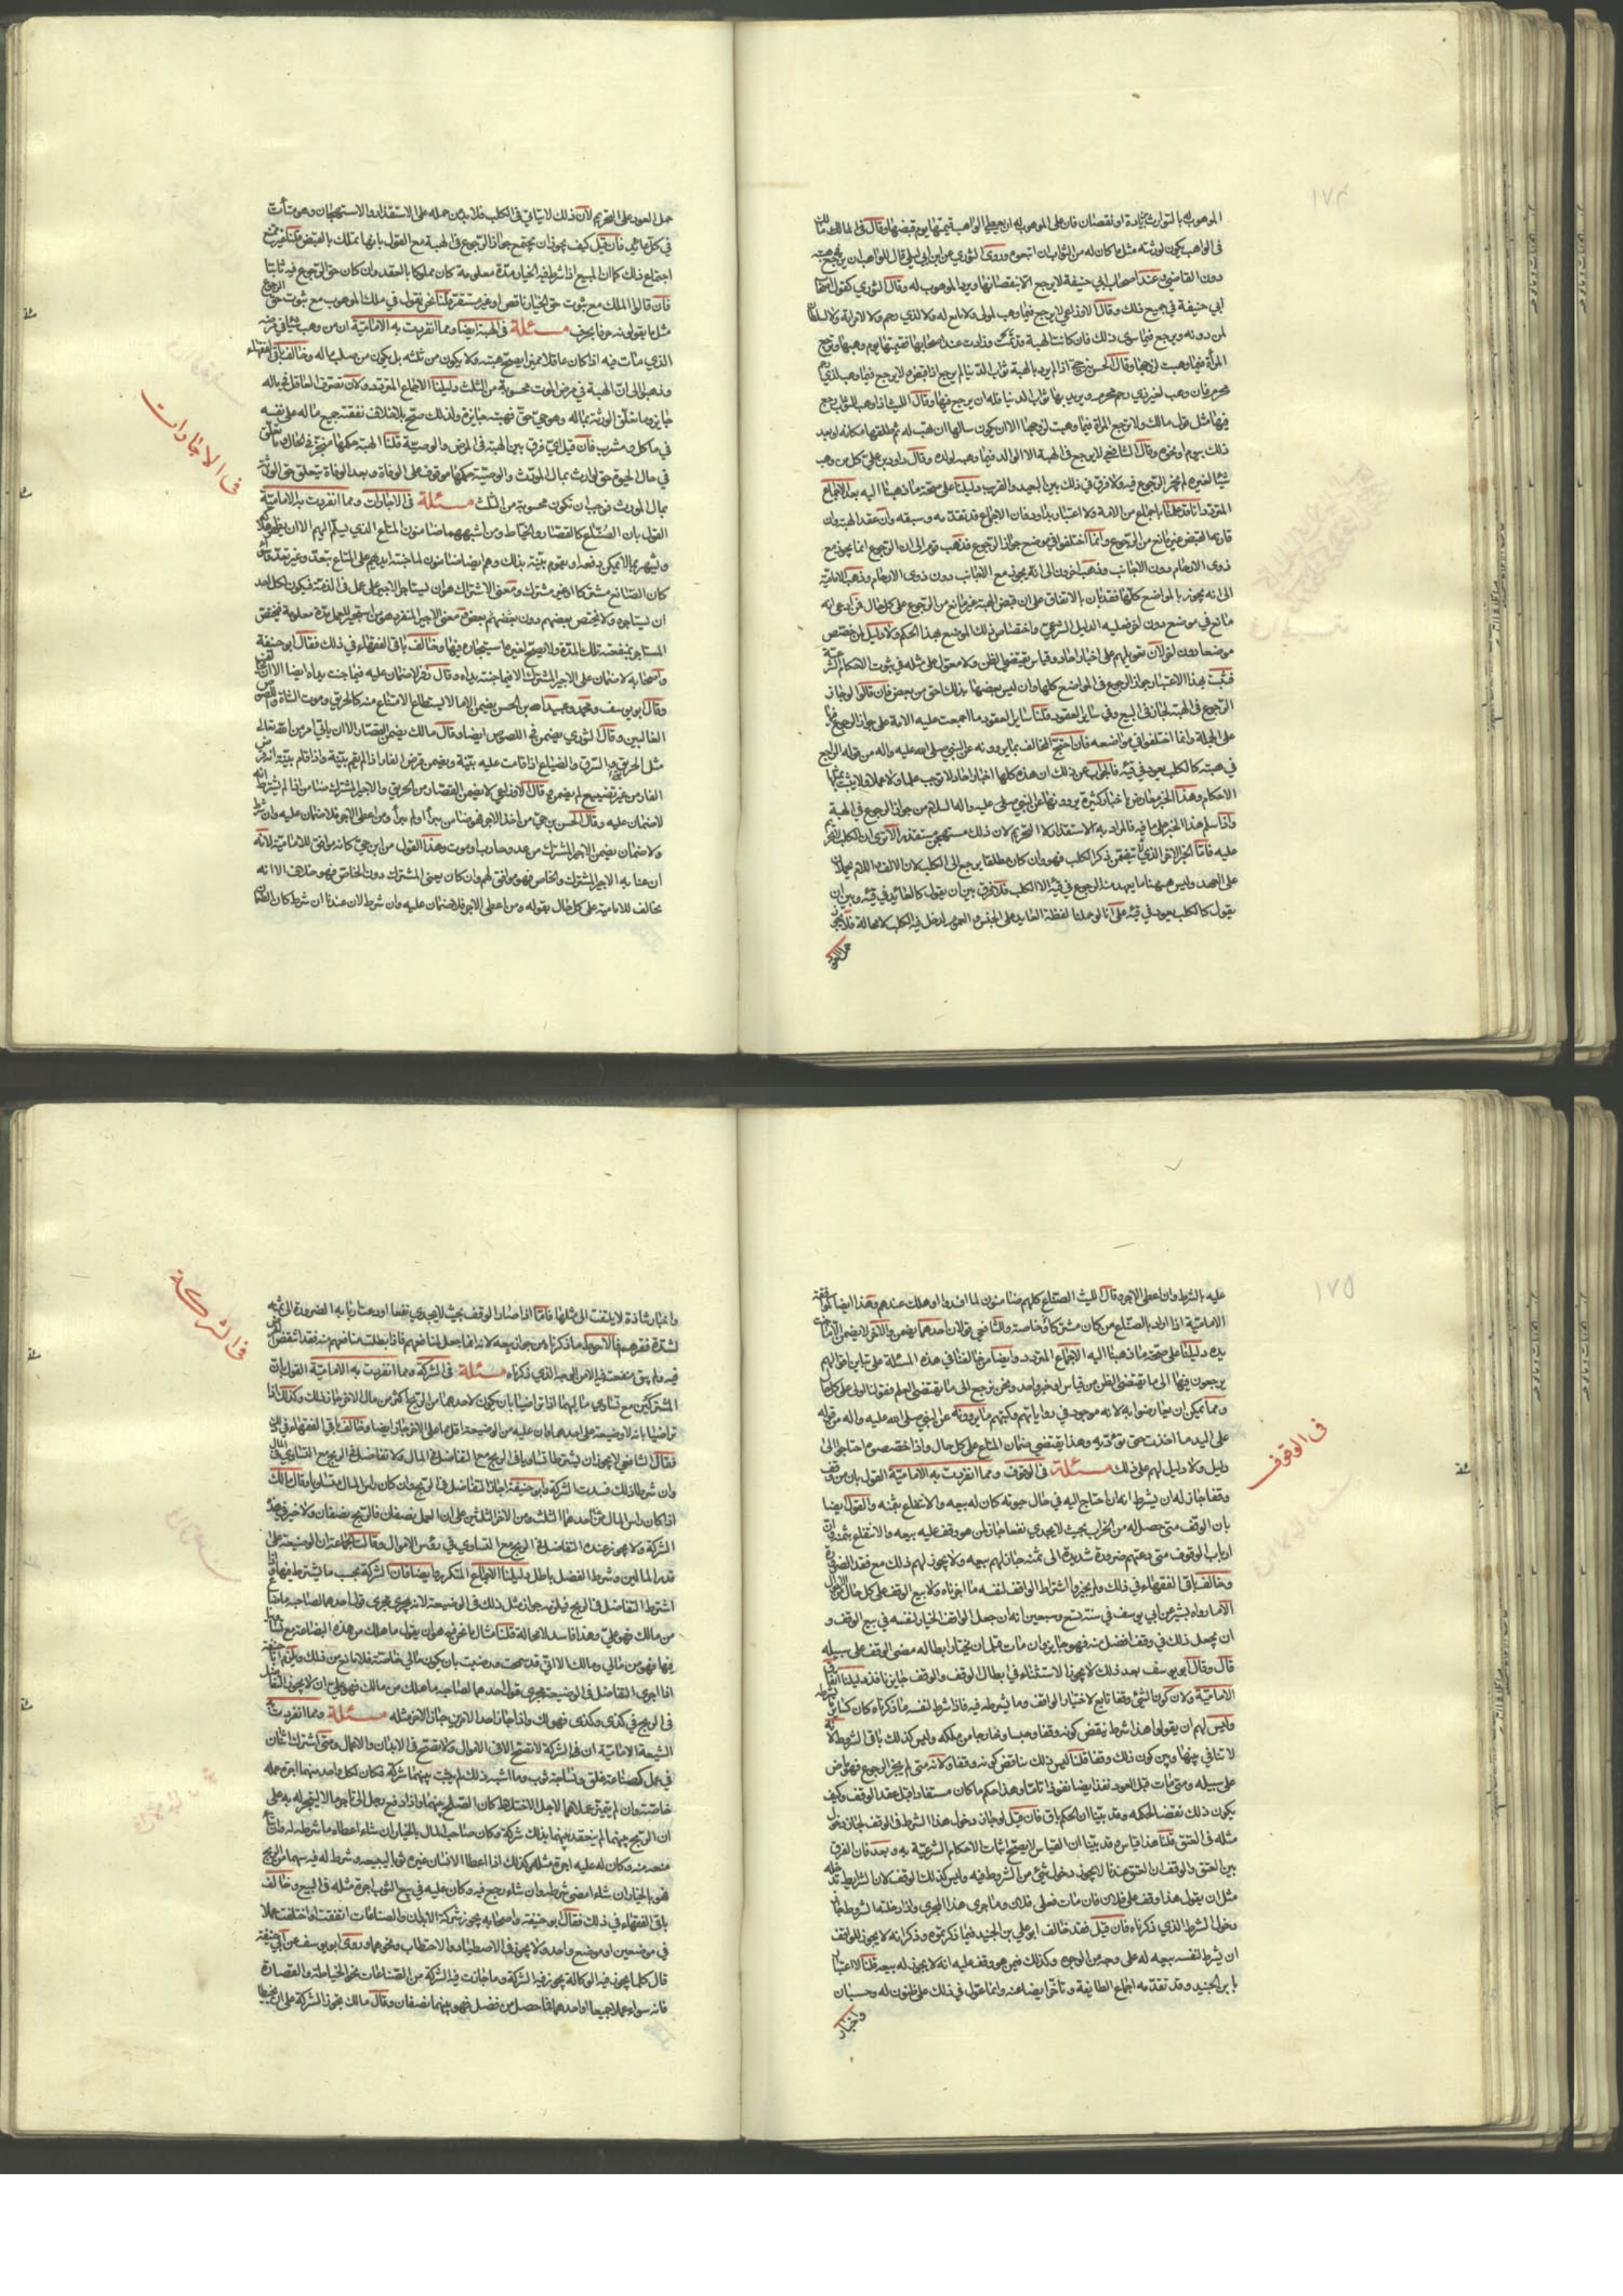 ١٧٤
الموهوب له بالتوارث بزيادة او نقصان فان على الموهوب له ان يعطي الواهب قيمتها يوم قبضها وقال في المالك
في الواهب يكون لورثته مثل ما كان له من الثواب ان اتبعوه وروى الثوري عن ابن ابي ليلى قال للواهب ان يرجع في هبته
دون القاضي وعند اصحاب ابي حنيفة لا يرجع الا بقضاء او يرد الموهوب له وقال الثوري كقول اصحاب
ابي حنيفة في جميع ذلك وقال الاوزاعي لا يرجع فيما وهب لمولى ولا تابع له ولا لذي رحم ولا لامرأة ولا لسلطان
لمن دونه ويرجع فيما سوى ذلك فان كانت الهبة قد نمت وزادت عند صاحبها فقيمتها يوم وهبها وترجع
المرأة فيما وهبت لزوجها وقال الحسن بن حي اذا لم يرد بالهبة ثواب الدنيا لم يرجع اذا قبض ولا يرجع فيما وهب لذي رحم
محرم فان وهب لغير ذي رحم محرم ويريد بها ثواب الدنيا فله ان يرجع فيها وقال الليث اذا وهب للثواب رجع
فيها مثل قول مالك ولا ترجع المرأة فيما وهبت لزوجها الا ان يكون سالها ان تهب له ثم طلقها مكانه او بعد
ذلك بيوم او نحوه وقال الشافعي لا يرجع في الهبة الا الوالد فيما وهبه لولده وقال داود بن علي كل من وهب
شيئا لغيره لم يجز الرجوع فيه ولا فرق في ذلك بين البعيد والقريب دليلنا على صحة ما ذهبنا اليه بعد الاجماع
المتردد انا قد علمنا باجماع من الامة ولا اعتبار بداود فان الاجماع قد تقدمه وسبقه وان عقد الهبة وان
قارنها القبض غير مانع من الرجوع وانما اختلفوا في موضع جواز الرجوع فذهب قوم الى ان الرجوع انما يجوز مع
ذوي الارحام دون الاجانب وذهب اخرون الى انه يجوز مع الاجانب دون ذوي الارحام وذهب الامامية
الى انه يجوز بالمواضع كلها فقد بان بالاتفاق على ان قبض الهبة غير مانع من الرجوع على كل حال فمن ادعى انه
مانع في موضع دون اخر فعليه الدليل الشرعي واختصاص ذلك الموضع بهذا الحكم ولا دليل لمن خصص
موضعا دون اخر لان تعويلهم على اخبار احاد وقياس يقتضي الظن ولا معول على مثله في ثبوت الاحكام الشرعية
فثبت بهذا الاعتبار جواز الرجوع في المواضع كلها وان ليس بعضها بذلك احق من بعض فان قالوا لو جاز
الرجوع في الهبة لجاز في البيع وفي ساير العقود قلنا ساير العقود ما اجمعت عليه الامة على جواز الرجوع فيها
على الجملة وانما اختلفوا في مواضعه فان احتج المخالف بما يروونه عن النبي صلى الله عليه واله من قوله الراجع
في هبته كالكلب يعود في قيئه فالجواب عن ذلك ان هذه كلها اخبار احاد لا توجب علما ولا عملا ولا يثبت بمثلها
الاحكام وهذا الخبر معارض باخبار كثيرة يروونها عن النبي صلى عليه واله السلام من جواز الرجوع في الهبة
واذا سلم هذا الخبر على ما فيه فالمراد به الاستقذار لا التحريم لان ذلك مستهجن مستقذر الا ترى ان الكلب لا تحريم
عليه فاما الخبر الاخر الذي يتضمن ذكر الكلب فهو وان كان مطلقا يرجع الى الكلب لان الالف واللام يحملان
على العهد وليس ههنا ما يعهد منه الرجوع في قيئه الا الكلب فلا فرق بين ان يقول كالعائد في قيئه وبين ان
يقول كالكلب يعود في قيئه على انا لو حملنا لفظة العايد على الجنس والعموم لدخل فيه الكلب لا محالة فلا يجوز
حمل العود
حمل العود على التحريم لان ذلك لا يتاتى في الكلب فلا بد من حمله على الاستقذار والاستهجان وهو متأت
في كل عائد فان قيل كيف يجوز ان يجتمع جواز الرجوع في الهبة مع القول بانها تملك بالقبض قلنا غير ممتنع
اجتماع ذلك كما ان المبيع اذا شرط فيه الخيار مدة معلومة كان مملوكا بالعقد وان كان حق الرجوع فيه ثابتا
فان قالوا الملك مع ثبوت حق الخيار ناقص او غير مستقر قلنا نحن نقول في ملك الموهوب مع ثبوت حق الرجوع
مثل ما يقولونه حرفا بحرف مسئلة في الهبة ايضا ومما انفردت به الامامية ان من وهب شيئا في مرضه
الذي مات فيه اذا كان عاقلا مميزا يصح هبته ولا يكون من ثلثه بل يكون من صلب ماله وخالف باقي الفقهاء
وذهبوا الى ان الهبة في مرض الموت محسوبة من الثلث دليلنا الاجماع المتردد ولان تصرف العاقل في ماله
جايز وما تعلق الورثة بماله وهو حي حتى فهبته جايزة ولذلك صح بلا خلاف نفقته جميع ماله على نفسه
في ماكل ومشرب فان قيل اي فرق بين الهبة في المرض والوصية قلنا الهبة حكمها منجز في الحال وما تعلق
في حال الحيوة حق لوارث بمال المورث والوصية حكمها موقوف على الوفاة وبعد الوفاة يتعلق حق الورثة
بمال المورث فوجب ان تكون محسوبة من الثلث مسئلة في الاجارات ومما انفردت به الامامية
في الاجارات
القول بان الصناع كالقصار والخياط ومن اشبههما ضامنون المتاع الذي يسلم اليهم الا ان يظهر هلاكه
ويشتهر بما لا يمكن دفعه او يقوم بينة بذلك وهم ايضا ضامنون لما جنته ايديهم على المتاع بتعد وغير تعد وسواء
كان الصانع مشتركا او غير مشترك ومعنى الاشتراك هو ان يستاجر الاجير على عمل في الذمة فيكون لكل احد
ان يستاجره ولا يختص بعضهم دون بعضهم ومعنى الاجير المنفرد هو من استوجر للعمل مدة معلومة فيختص
المستاجر بمنفعته تلك المدة ولا يصح لغيره استيجاره فيها وخالف باقي الفقهاء في ذلك فقال ابو حنيفة
واصحابه لا ضمان على الاجير المشترك الا فيما جنته يداه وقال زفر لا ضمان عليه فيما جنت يداه ايضا الا ان يخالف
وقال ابو يوسف ومحمد وعبيد الله بن الحسن يضمن الا ما لا يستطاع الامتناع منه كالحريق وموت الشاة واللصوص
الغالبين وقال الثوري يضمن في اللصوص ايضا وقال مالك يضمن القصار الا ان ياتي امر من الله تعالى
مثل الحريق والسرق والضياع اذا قامت عليه بينة ويضمن قرض الفار اذا لم يقم بينة واذا قام بينة انه قرض
الفار من غير تضييع لم يضمن وقال الاوزاعي لا يضمن القصار من الحريق والاجير المشترك ضامن اذا لم يشترط انه
لا ضمان عليه وقال الحسن بن حي من اخذ الاجر فهو ضامن تبرأ او لم يبرأ ومن اعطى الاجر فلا ضمان عليه وان شرط
ولا ضمان يضمن الاجير المشترك من عدو حارب او موت وهذا القول من ابن حي كانه موافق للامامية لانه
ان عنى به الاجير المشترك والخاص فهو موافق لهم وان كان يعنى المشترك دون الخاص فهو خلاف الا انه
مخالف للامامية على كل حال بقوله ومن اعطى الاجر فلا ضمان عليه وان شرط لان عندنا ان شرط كان الضمان
١٧٥
عليه بالشرط وان اعطى الاجر وقال الليث الصناع كلهم ضامنون لما افسدوا او هلك عندهم وهذا ايضا كموافقة
الامامية اذا اراد بالصناع من كان مشتركا وخاصة وللشافعي قولان احدهما يضمن والاخر لا يضمن الا ما جنت
يده دليلنا على صحة ما ذهبنا اليه الاجماع المتردد وايضا من خالفنا في هذه المسئلة على تباين اقوالهم
يرجعون فيها الى ما يقتضي الظن من قياس او خبر واحد ونحن نرجع الى ما يقتضي العلم فقولنا اولى على كل حال
ومما يمكن ان يعارضوا به لانه موجود في رواياتهم وكتبهم ما يروونه عن النبي صلى الله عليه واله من قوله
على اليد ما اخذت حتى تؤديه وهذا يقتضي ضمان المتاع على كل حال واذا خصصوه احتاجوا الى
دليل ولا دليل لهم على ذلك مسئلة في الوقوف ومما انفردت به الامامية القول بان من وقف
في الوقوف
وقفا جاز له ان يشرط انه ان احتاج اليه في حال حيوته كان له بيعه والانتفاع بثمنه والقول ايضا
بان الوقف متى حصل له من الخراب بحيث لا يجدي نفعا جاز لمن هو وقف عليه بيعه والانتفاع بثمنه وان
ارباب الوقوف متى دعتهم ضرورة شديدة الى ثمنه جاز لهم بيعه ولا يجوز لهم ذلك مع فقد الضرورة
وخالف باقي الفقهاء في ذلك ولم يجيزوا اشتراط الواقف لنفسه ما اجزناه ولا بيع الوقف على كل حال
الا ما رواه بشر عن ابي يوسف في سنة تسع وسبعين انه ان جعل الواقف الخيار لنفسه في بيع الوقف و
ان يجعل ذلك في وقف افضل منه فهو جايز وان مات قبل ان يختار ابطاله مضى الوقف على سبيله
قال وقال ابو يوسف بعد ذلك لا يجوز الاستثناء في ابطال الوقف والوقف جايز نافذ دليلنا اتفاق
الامامية ولان كون الشئ وقفا تابع لاختيار الواقف وما يشرطه فيه فاذا شرط لنفسه ما ذكرناه كان كساير ما يشرطه
وليس لهم ان يقولوا هذا شرط ينقض كونه وقفا وحبسا وخارجا من ملكه وليس كذلك باقي الشروط لانه
لا تنافي بينها وبين كون ذلك وقفا قلنا ليس ذلك بناقض كونه وقفا ولانه متى لم يختر الرجوع فهو ماض
على سبيله ومتى مات قبل العود نفذ ايضا نفوذا تاما وهذا حكم ما كان مستفادا قبل عقد الوقف وكيف
يكون ذلك نقضا لحكمه وقد بينا ان الحكم باق فان قيل لو جاز دخول هذا الشرط في الوقف لجاز دخول
مثله في العتق قلنا هذا قياس وقد بينا ان القياس لا يصح اثبات الاحكام الشرعية به وبعد فان الفرق
بين العتق والوقف ان العتق عندنا لا يجوز دخول شئ من الشروط فيه وليس كذلك الوقف لان الشرايط تدخله
مثل ان يقول هذا وقف على فلان فان مات فعلى فلان وما جرى هذا المجرى واذا دخلته الشروط جاز
دخول الشرط الذي ذكرناه فان قيل فقد خالف ابو علي بن الجنيد فيما ذكرتموه وذكر انه لا يجوز للواقف
ان يشرط لنفسه بيعه له على وجه من الوجوه وكذلك فيمن هو وقف عليه انه لا يجوز له بيعه قلنا لا اعتبار
بابن الجنيد وقد تقدمه اجماع الطايفة وتاخر ايضا عنه وانما عول في ذلك على ظنون له وحسبان
واخبار
واخبار شاذة لا يلتفت الى مثلها فاما اذا صار الوقف بحيث لا يجدي نفعا او دعت اربابه الضرورة الى ثمنه
في الشركة
لشدة فقرهم فالاحوط ما ذكرناه من جواز بيعه لانه انما جعل لمنافعهم فاذا بطلت منافعهم منه فقد انتقض الغرض
فيه ولم يبق منفعة فيه الا من الوجه الذي ذكرناه مسئلة في الشركة ومما انفردت به الامامية القول بان
المشتركين مع تساوي ماليهما اذا تراضيا بان يكون لاحدهما من الربح اكثر من مال الاخر جاز ذلك وكذلك اذا
تراضيا بانه لا وضيعة على احدهما او ان عليه من الوضيعة اقل مما على الاخر جاز ايضا وخالف باقي الفقهاء في ذلك
فقال الشافعي لا يجوز ان يشترطا تساويا في الربح مع التفاضل في المال ولا تفاضل في الربح مع التساوي في المال
وان شرطا ذلك فسدت الشركة وابو حنيفة اجاز التفاضل في الربح وان كان راس المال متساويا وقال مالك
اذا كان راس المال من احدهما الثلث ومن الاخر الثلثين على ان العمل نصفان فالربح نصفان ولا خير في هذه
الشركة ولا يجوز عنده التفاضل في الربح مع التساوي في رؤس الاموال وقالت الجماعة ان الوضيعة على
قدر المالين وشرط الفضل باطل دليلنا الاجماع المتكرر وايضا فان الشركة بحسب ما يشترط فيها فاذا
اشترط التفاضل في الربح
من مالك فهو علي وهذا فاسد لا محالة قلنا مثال ما نحن فيه هو ان يقول ما هلك من هذه البضاعة مع تساوينا
فيها فهو من مالي ومالك الا انني قد سمحت ورضيت بان يكون من مالي خاصة فلا مانع من ذلك ويلزم ابا حنيفة
اذا اجرى التفاضل في الوضيعة مجرى قول احدهما لصاحبه ما هلك من مالك فهو علي ان لا يجوز التفاضل
في الربح
مسئلة ومما انفردت به
الشيعة الامامية ان الشركة لا تصح الا في الاموال ولا تصح في الابدان والاعمال ومتى اشترك اثنان
في عمل كصناعة غلق ونساجة ثوب وما اشبه ذلك لم يثبت بينهما شركة فكان لكل واحد منهما اجرة عمله
خاصة وان لم يتميز عملاهما لاجل الاختلاط كان الصلح بينهما واذا دفع رجل الى تاجر مالا ليتجر له به على
ان الربح بينهما لم ينعقد بينهما بذلك شركة وكان صاحب المال بالخيار ان شاء اعطاه ما شرطه له وان شاء
منعه منه وكان له عليه اجرة مثله وكذلك اذا اعطى الانسان غيره ثوبا ليبيعه وشرط له فيه سهما من الربح
فهو بالخيار ان شاء امضى شرطه وان شاء رجع فيه وكان عليه في بيع الثوب اجرة مثله في البيع وخالف
باقي الفقهاء في ذلك فقال ابو حنيفة واصحابه يجوز شركة الابدان والصناعات اتفقت او اختلفت عملا
في موضعين او موضع واحد ولا يجوز في الاصطياد والاحتطاب ونحوهما وروى ابو يوسف عن ابي حنيفة
قال كلما يجوز فيه الوكالة يجوز فيه الشركة وما جازت فيه الشركة من الصناعات نحو الخياطة والقصارة
فانه سواء عملا جميعا او احدهما فما حصل من فضل فهو بينهما نصفان وقال مالك يجوز الشركة على ان يحتطبا